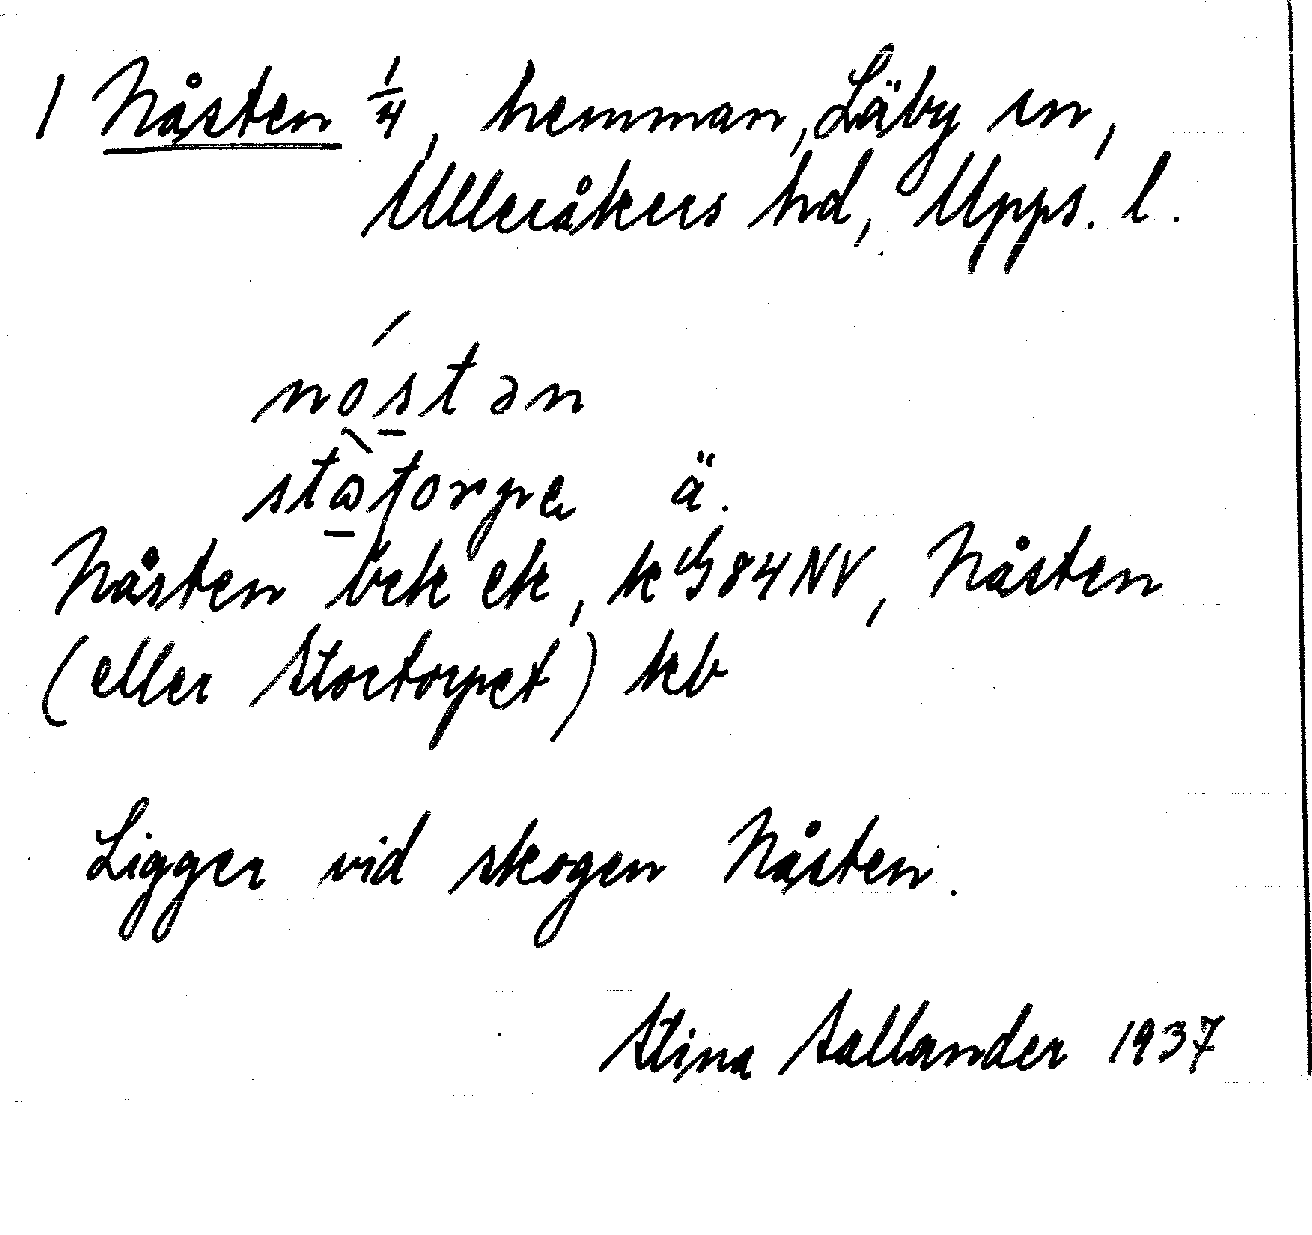 1 Nåsten 1/4, hemman, Läby sn,
Ulleråkers hd, Upps. l.
nóstən
ståtorpe ä.
Nåsten bek ek, k 84 NV, Nåsten
(eller Stortorpet) kb
Ligger vid skogen Nåsten.
Stina Sallander 1937